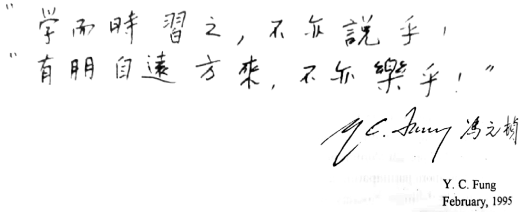 "学而時習之，不亦説乎！
"有朋自遠方來，不亦樂乎！"
Y. C. Fung 冯元桢
Y. C. Fung
February, 1995